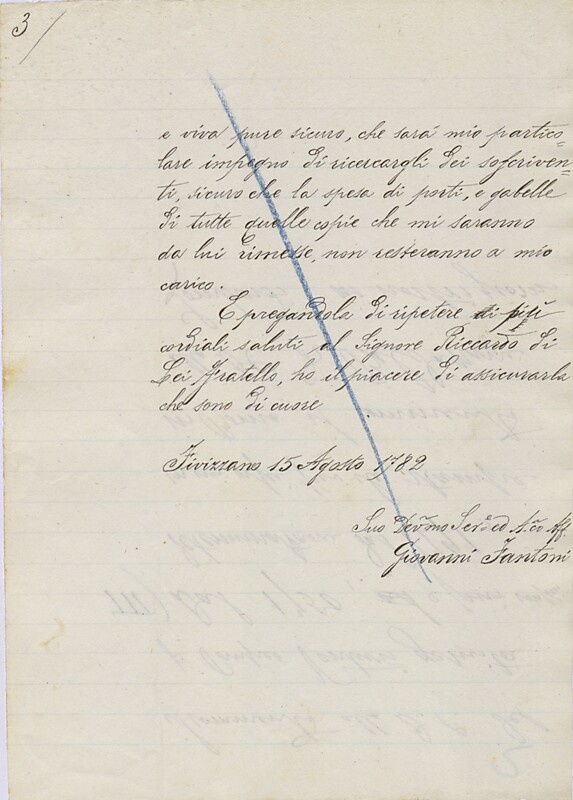 3
e viva pure sicuro, che sará mio partico=
lare impegno di ricercargli dei soscriven=
ti, sicuro che la spesa di porti, e gabelle
di tutte quelle copie che mi saranno
da lui rimesse, non resteranno a mio
carico.
E pregandola di ripetere di più
cordiali saluti al Signore Riccardo di
Lei Fratello, ho il piacere di assicurarla
che sono di cuore
Fivizzano 15 Agosto 1782
Suo Serº ed Aff.
Giovanni Fantoni